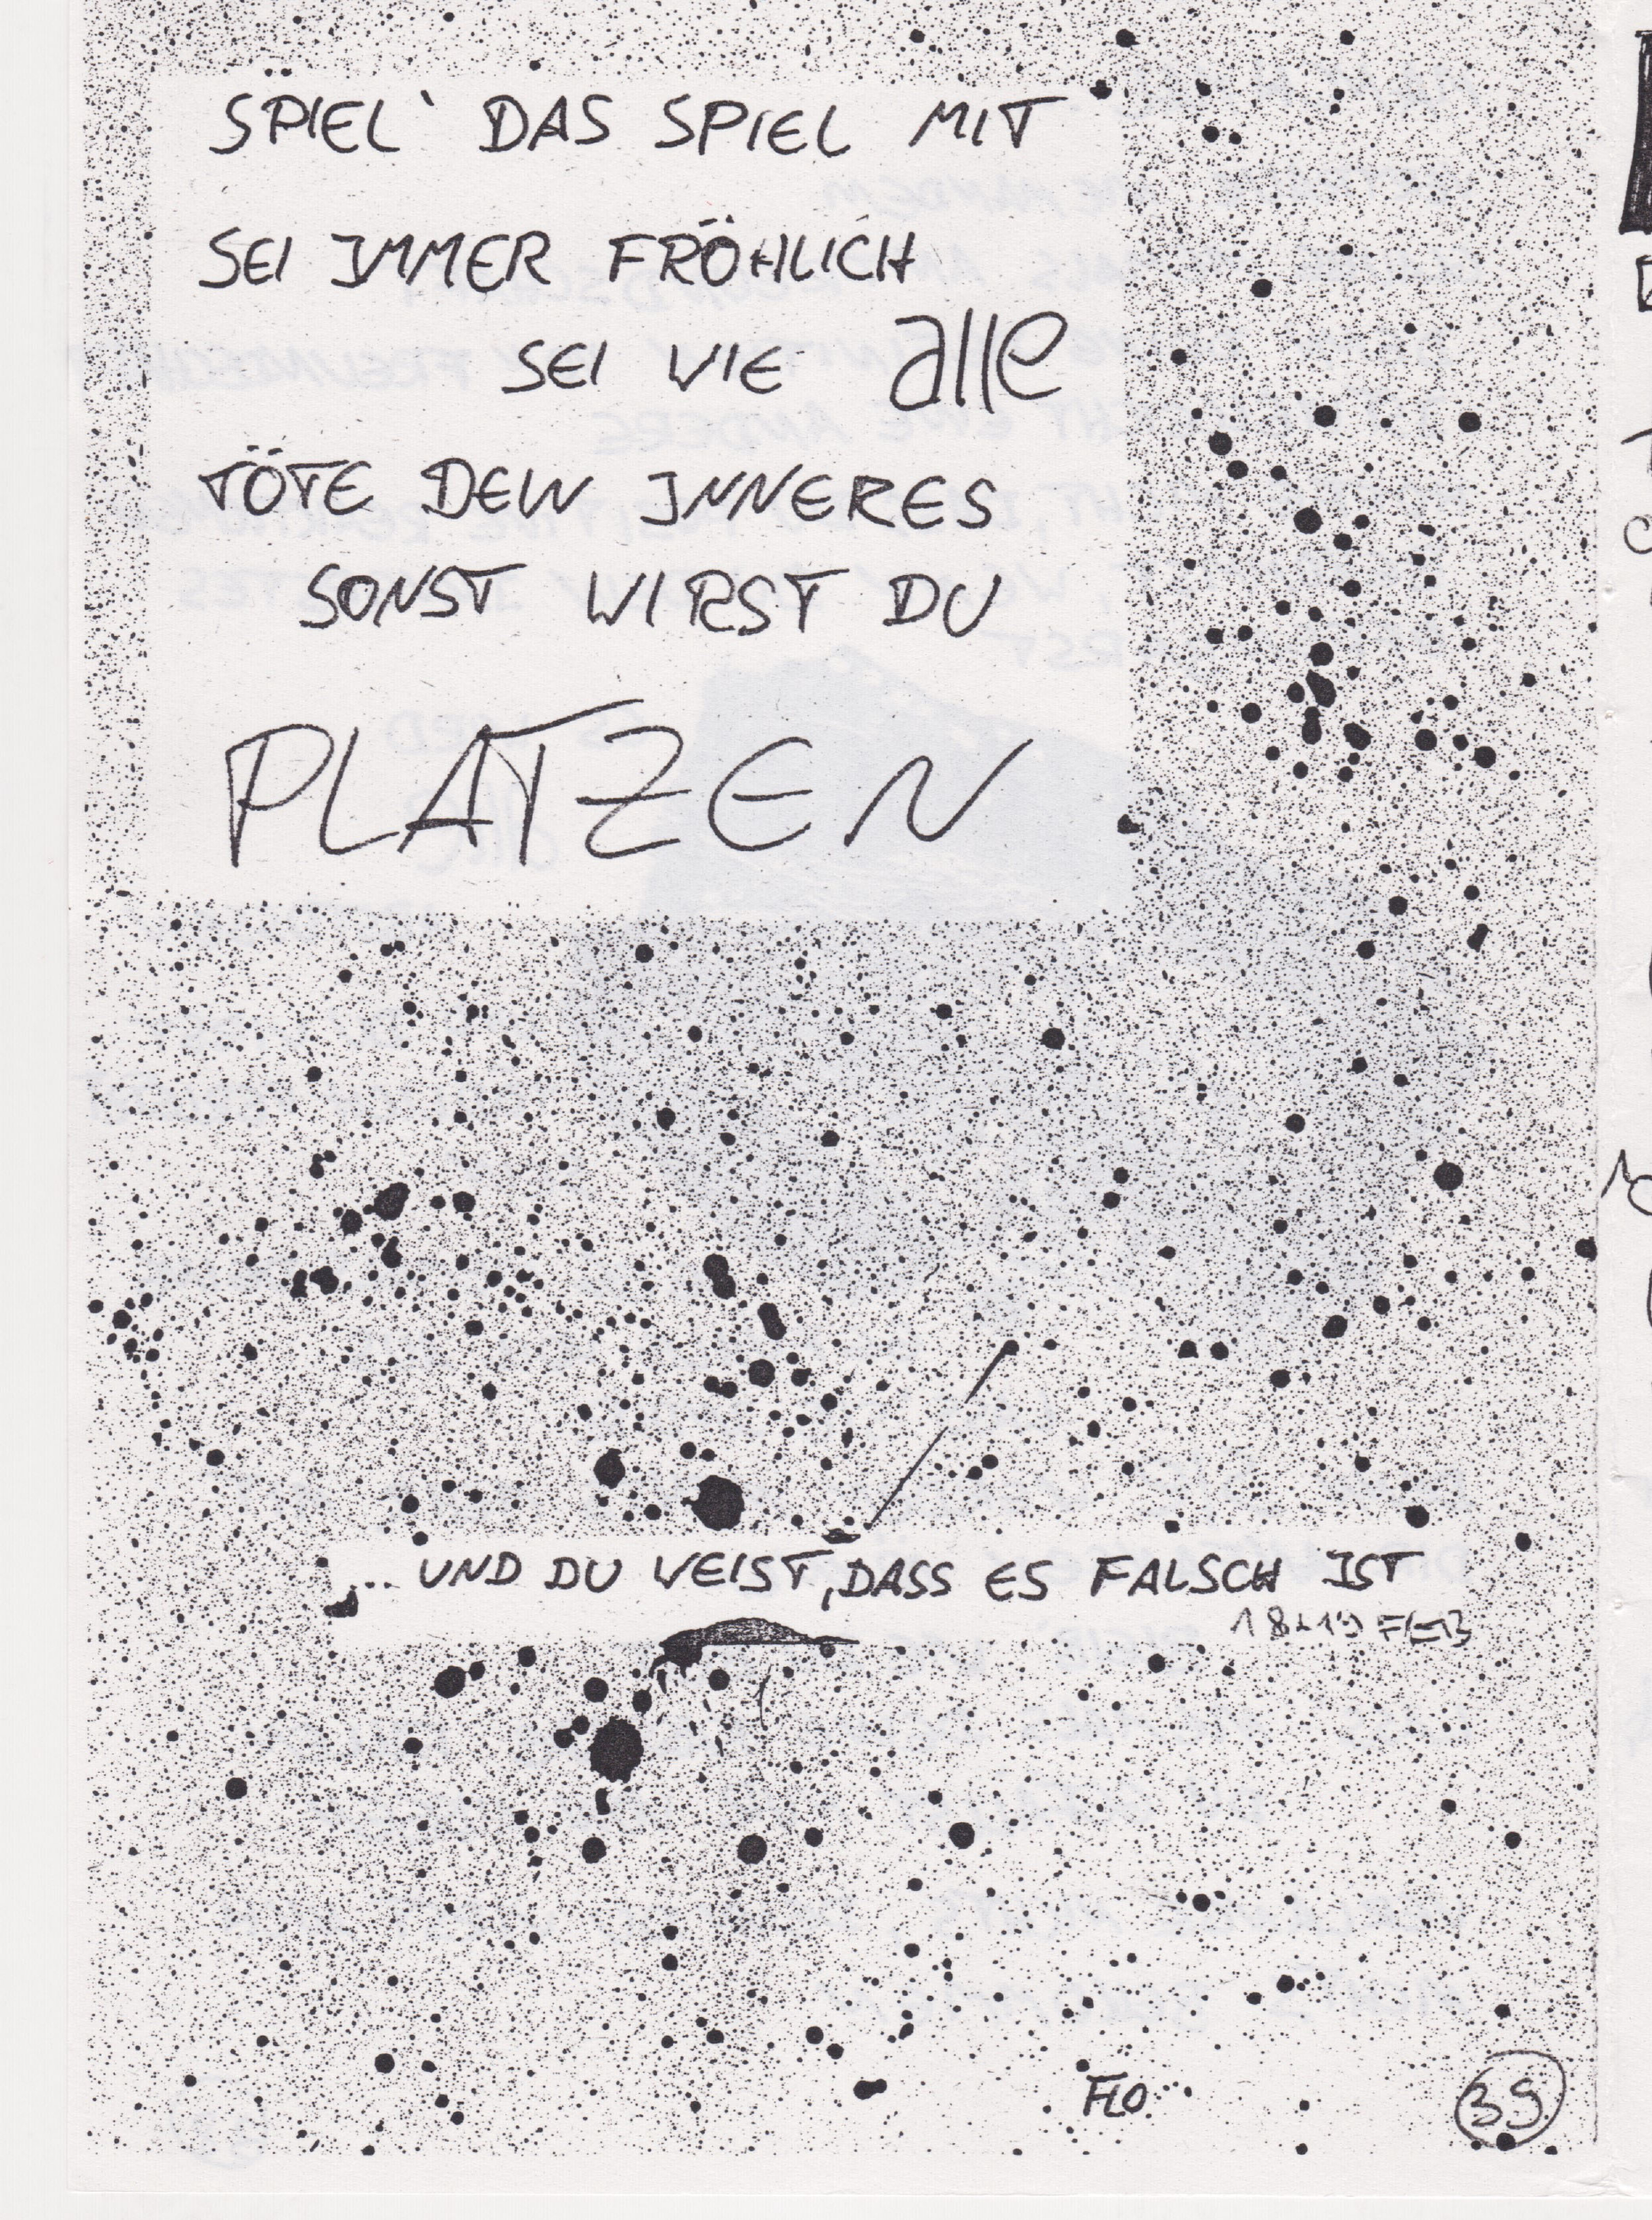 SPIEL` DAS SPIEL MIT
SEI IMMER FRÖHLICH
SEI WIE alle
TÖTE DEIN INNERES
SONST WIRST DU
PLATZEN
... UND DU WEIST, DASS ES FALSCH IST
FLO
39